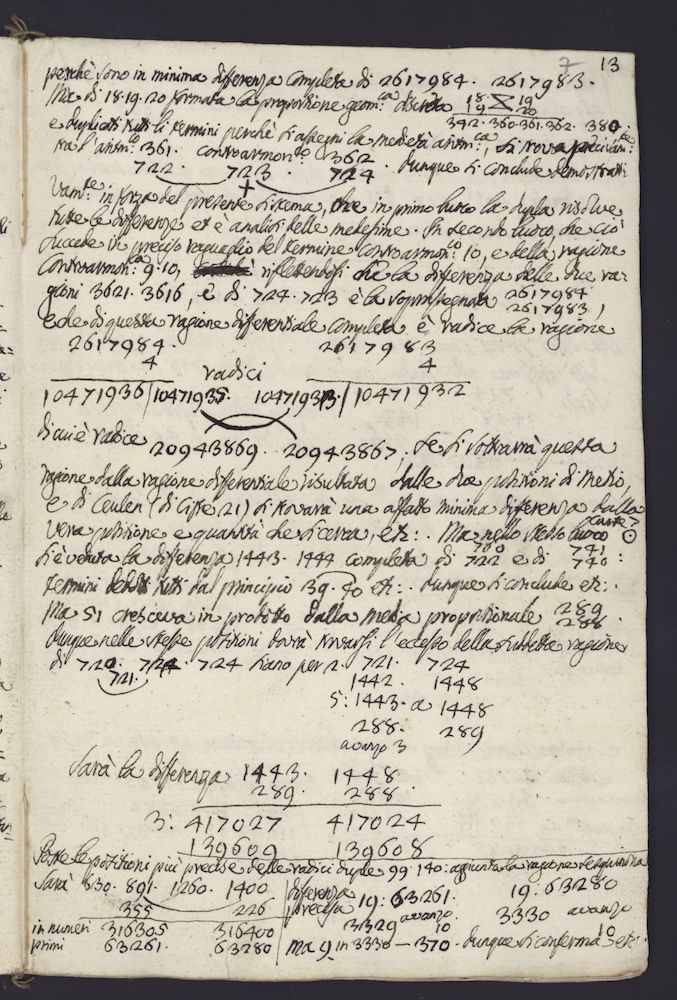 7 13
perchè sono in minima differenza completa di 2617984. 2617983.
Ma di 18.19.20 formata la proporzione geom:ca discreta 18. 19
19 20
342.360.361.362. 380.
e duplicati tutti li termini perchè si assegni la medietà aritm:ca, si trova precisam:te
tra l'aritm:co 361. contrarmon:co 362
722. 723. 724. dunque si conclude demostrati
vam:te in forza del presente sistema, che in primo luoco la dupla risolve
tutte le differenze et è analisi delle medesime. In secondo luoco, che ciò
succede in preciso raguaglio del termine contrarmon:co 10, e della ragione
contrarmon:ca 9.10, riflettendosi che la differenza delle due ra-
gioni 3621. 3616, e di 724.723 è la soprassegnata 2617984
2617983,
e che di questa ragione differentiale completa è radice la ragione
2617984 2617983
4 4
radici
10471936 | 10471935. 10471933. | 10471932
di cui è radice 20943869. 20943867, se si sottrarrà questa
ragione dalla ragione differentiale risultata dalle due posizioni di Metio,
e di Ceulen (di Cifre 21) si trovarà una affatto minima differenza dalla
vera posizione e quantità che si cerca, etc:. Ma nello stesso luoco
carte 7
si è veduta la differenza 1443. 1444 completa di 722 e di 740:
780 741
termini tutti dal principio 39.40 etc:. dunque si conclude etc:.
Ma 51 cresceva in prodotto dalla media proporzionale 289
288.
dunque nelle stesse posizioni dovrà trovarsi l'eccesso della suddetta ragione
di 720. 724. 724 siano per 2. 721. 724
721. 1442. 1448
5: 1443. a 1448
288. 289
avanzo 3
Sarà la differenza 1443. 1448
289. 288.
3: 417027 417024
139609 139608
Poste le posizioni più precise delle radici duple 99.140: aggiunta la ragione sesquinona
Sarà 630. 891. 1260. 1400
355 226
in numeri 316305 316400
primi 63261. 63280
differenza precisa 19: 63261. 19: 63280
3329 avanzo 10 3330 avanzo 10
Ma 9 in 3330 — 370. dunque si conferma etc:.